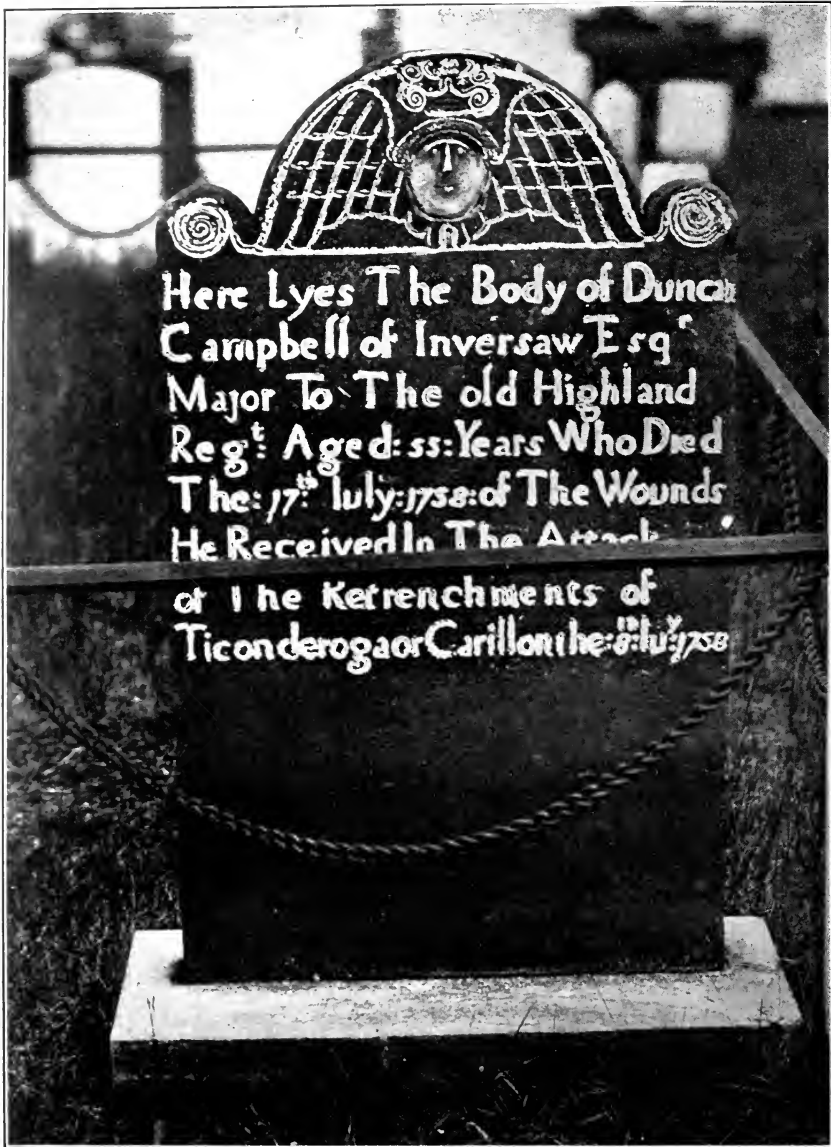 Here Lyes The Body of Duncan
Campbell of Inversaw Esqʳ
Major To The old Highland
Regᵗ: Aged:55:Years Who Died
The:17ᵗʰ Iuly:1758:of The Wounds
He Received In The Attack
of The Retrenchments of
Ticonderoga or Carillon the:8ᵗʰ:Iuʸ:1758